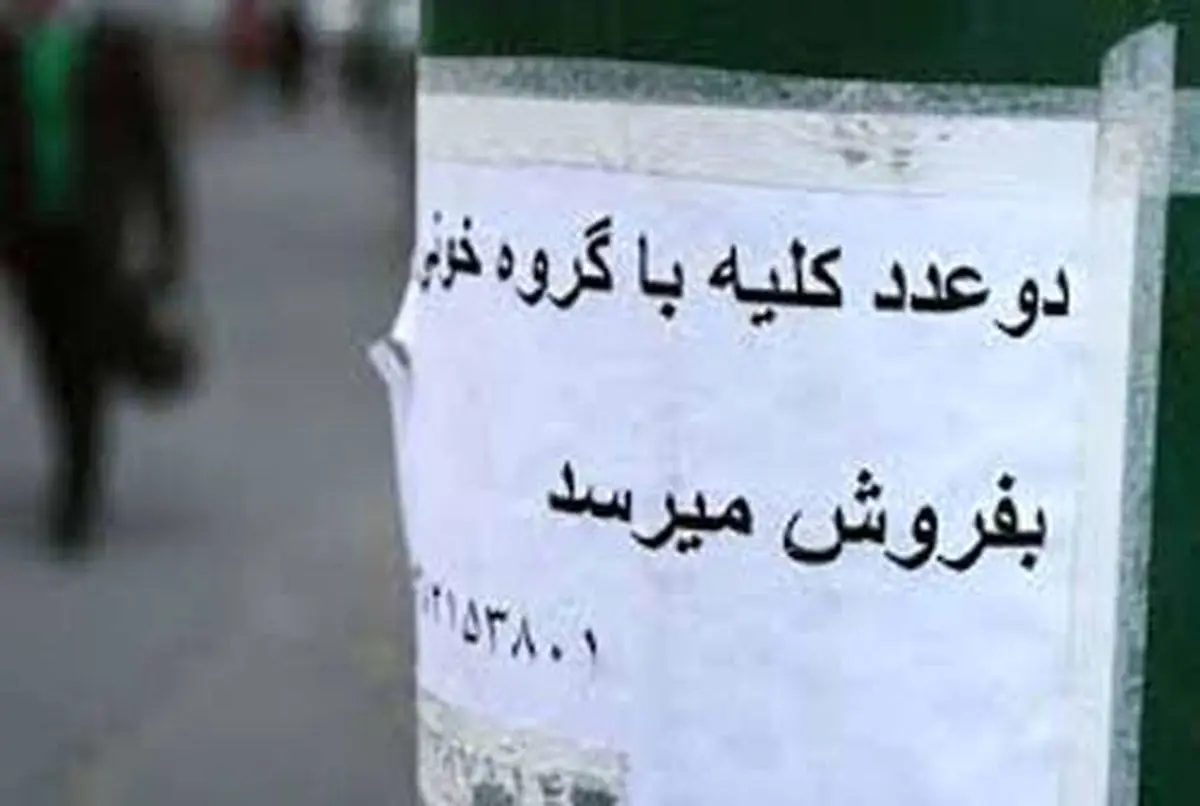 دو عدد کلیه با گروه خونی
بفروش میرسد
۰۲۱۵۳۸۰۱